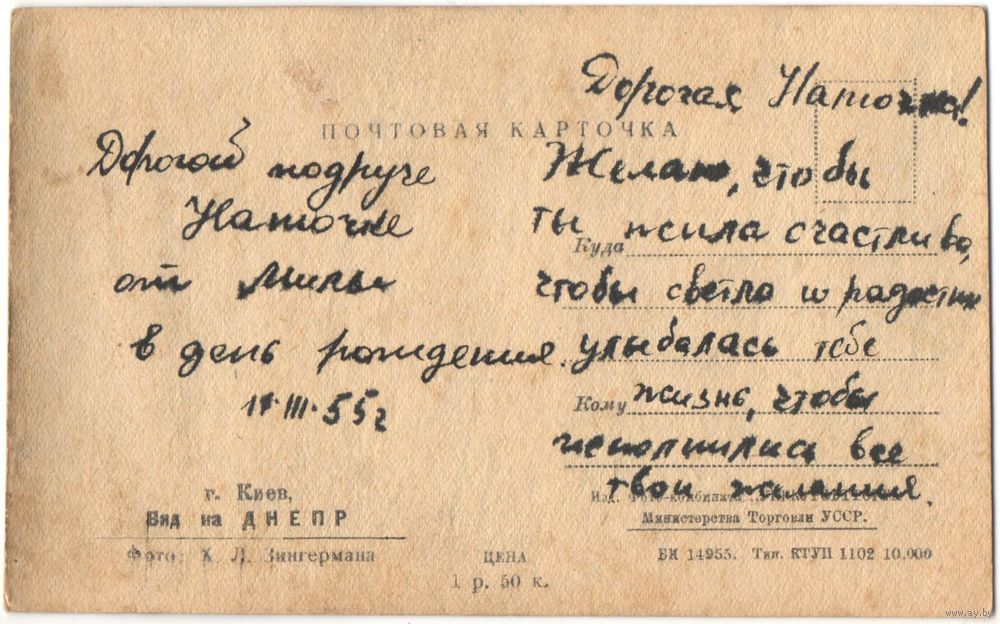 ПОЧТОВАЯ КАРТОЧКА
Дорогой подруге
Наточке
от Милы
в день рождения.
III. 55 г
Дорогая Наточка!
Желаю, чтобы
ты жила счастливо,
чтобы светло и радостно
улыбалась тебе
жизнь, чтобы
исполнились все
твои желания.
Куда
Кому
г. Киев,
Вид на ДНЕПР
Фото: Х. Л. Зингермана
ЦЕНА
1 р. 50 к.
Изд. Фото-комбината
Министерства Торговли УССР.
БИ 14955. Тип. КТУП 1102 10.000
www.ay.by